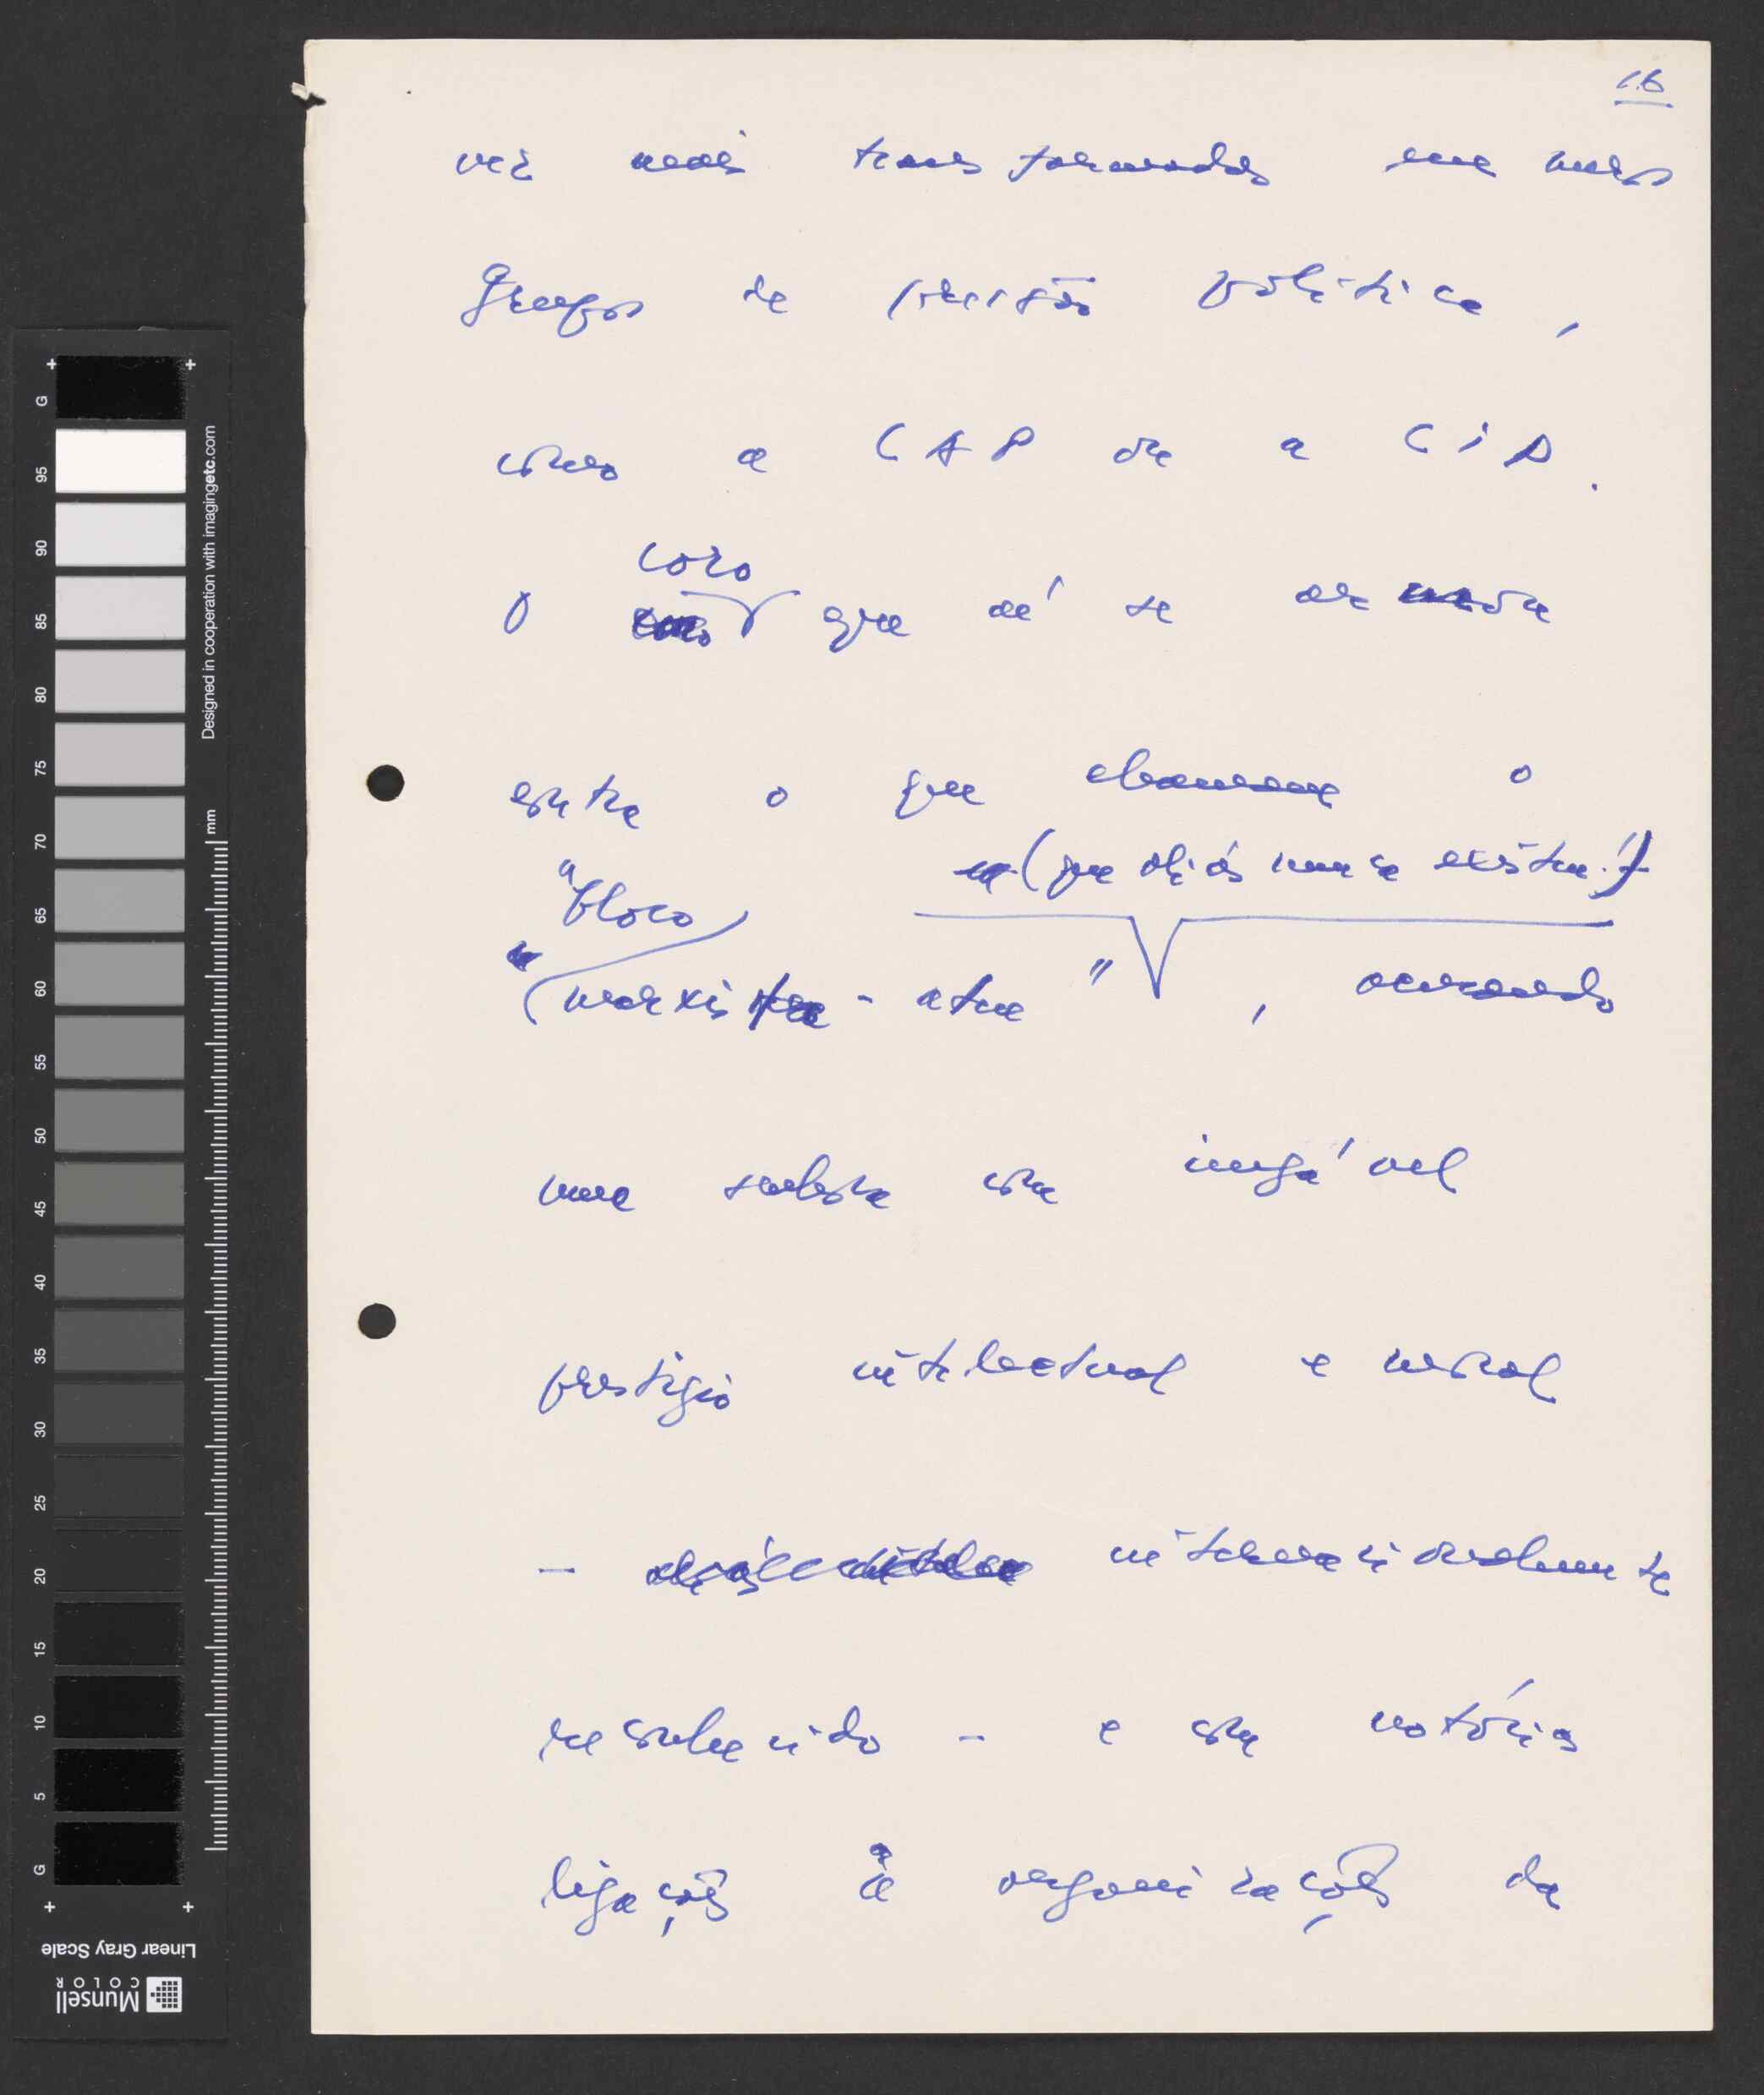 16
vez mais transformados em meros
grupos de pressão política,
como a CAP ou a CIP.
coro
O que aí se arma
entre o que chamam o
(que aliás nunca existiu!)
"bloco
marxista - ateu", acusando
uma sabor com inegável
prestígio intelectual e moral
- internacionalmente
reconhecido - e com notórias
ligações a organizações da
Designed in cooperation with imagingetc.com
mm
G
95
90
85
80
75
70
65
60
55
50
45
40
35
30
25
20
15
10
5
G
Linear Gray Scale
Munsell
COLOR